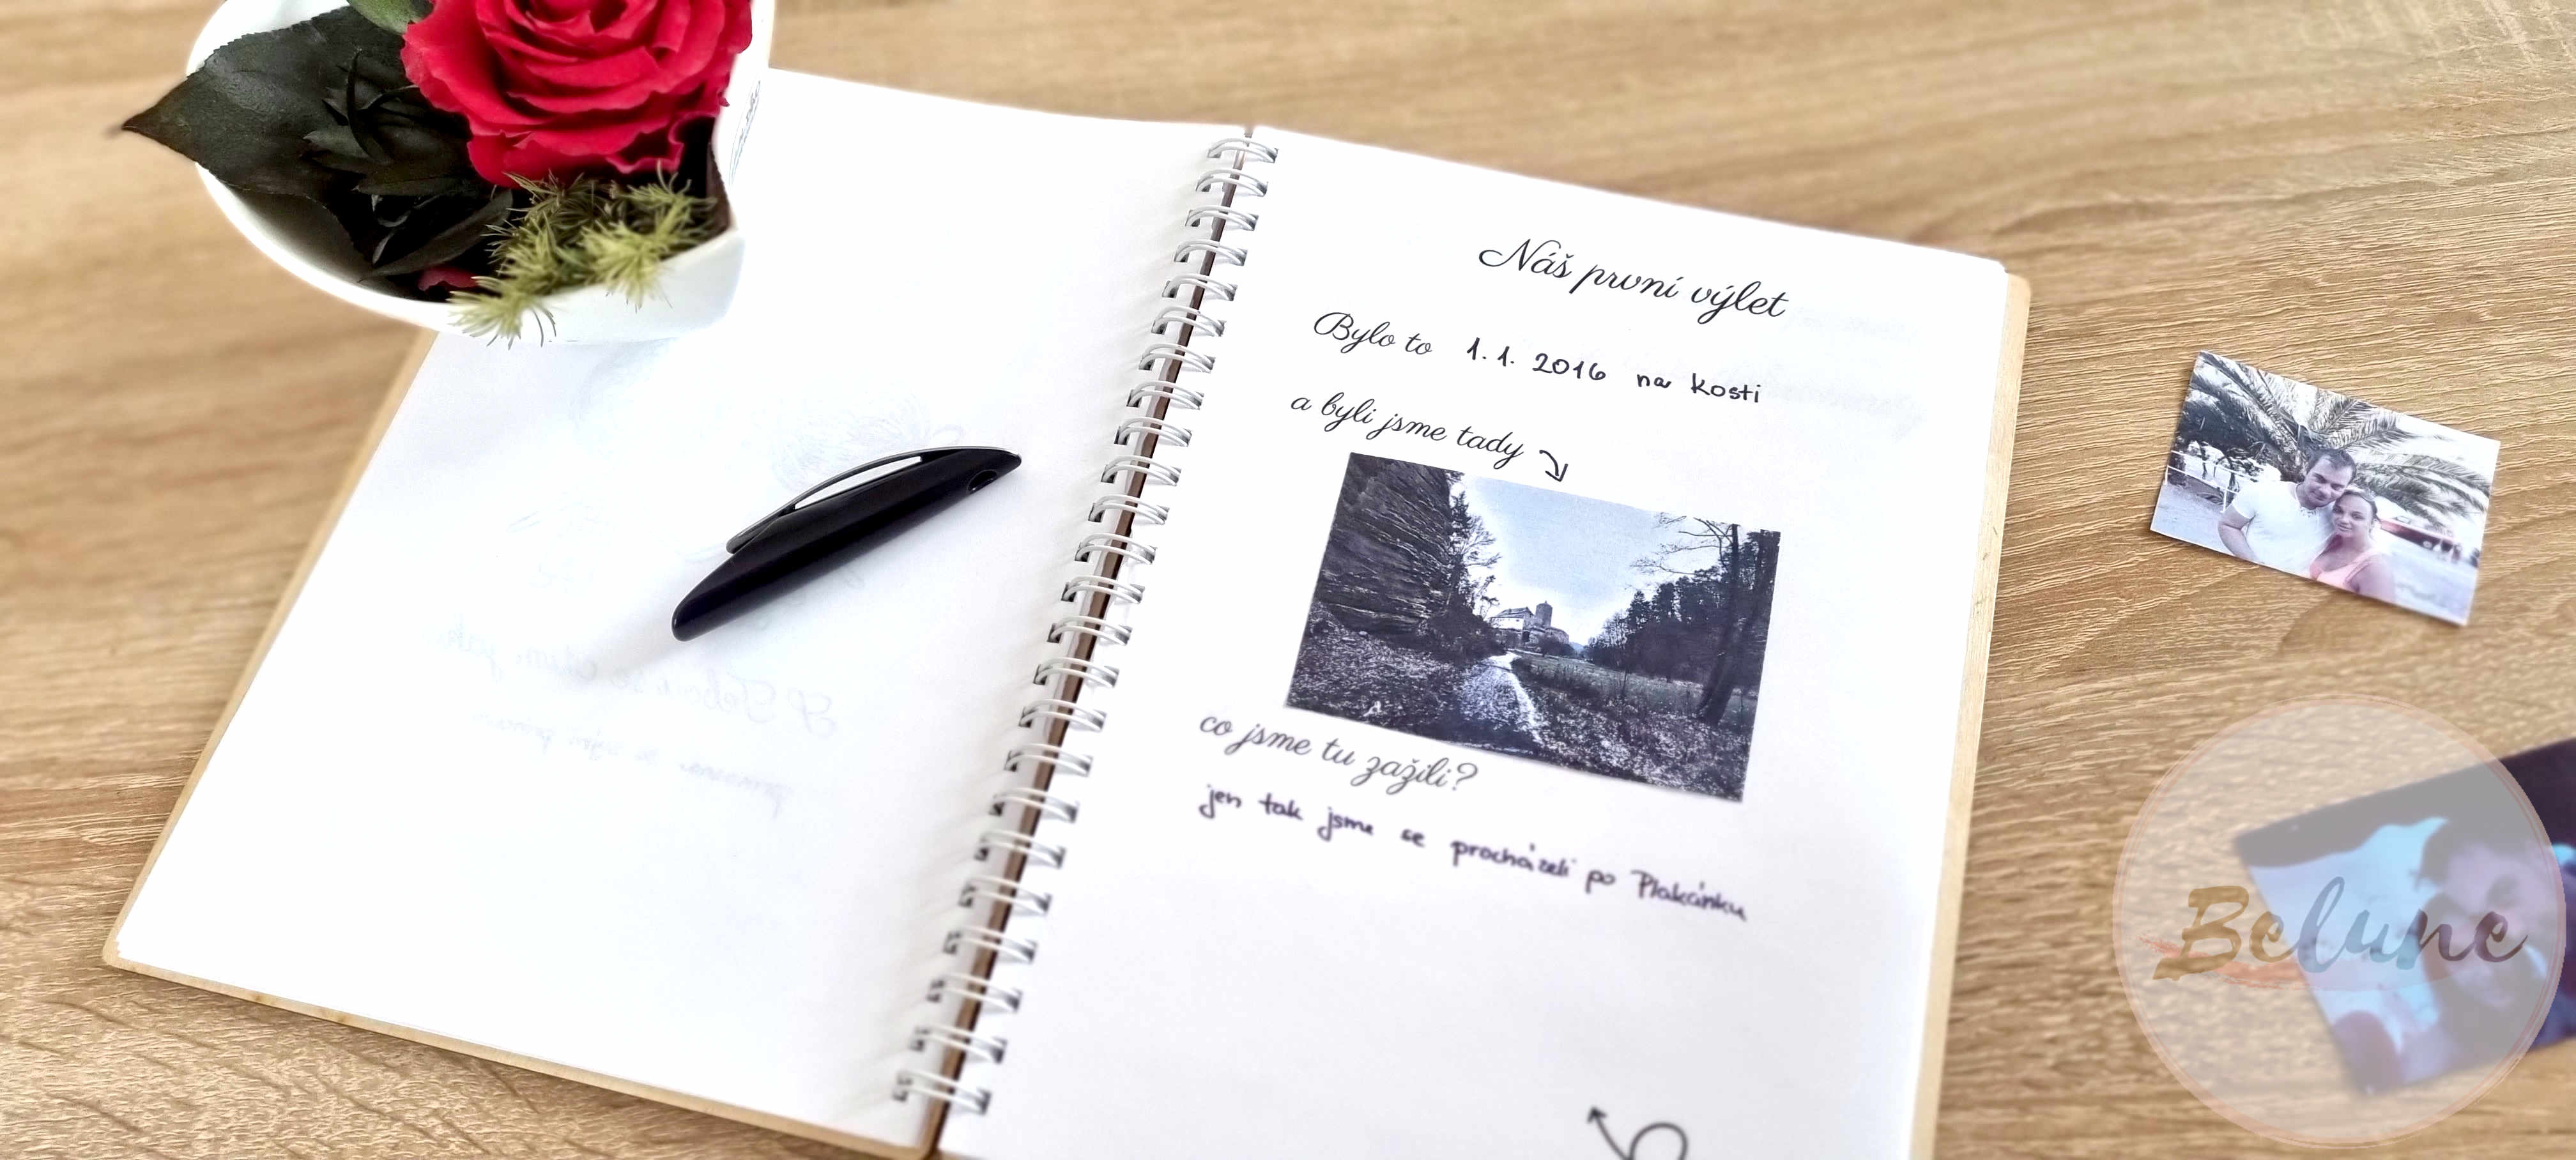 Náš první výlet
Bylo to 1.1. 2016 na kosti
a byli jsme tady
co jsme tu zažili?
jen tak jsme se procházeli po Plakánku
Belune